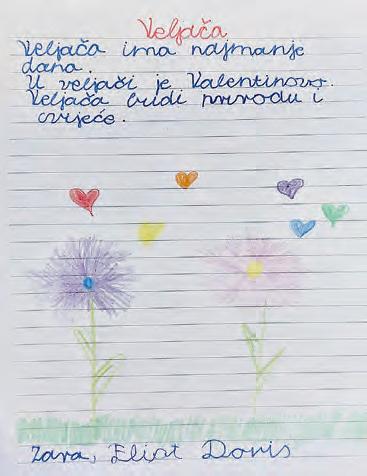 Veljača
Veljača ima najmanje
dana.
U veljači je Valentinovo.
Veljača budi prirodu i
cvijeće.
Zara, Eliot Doris